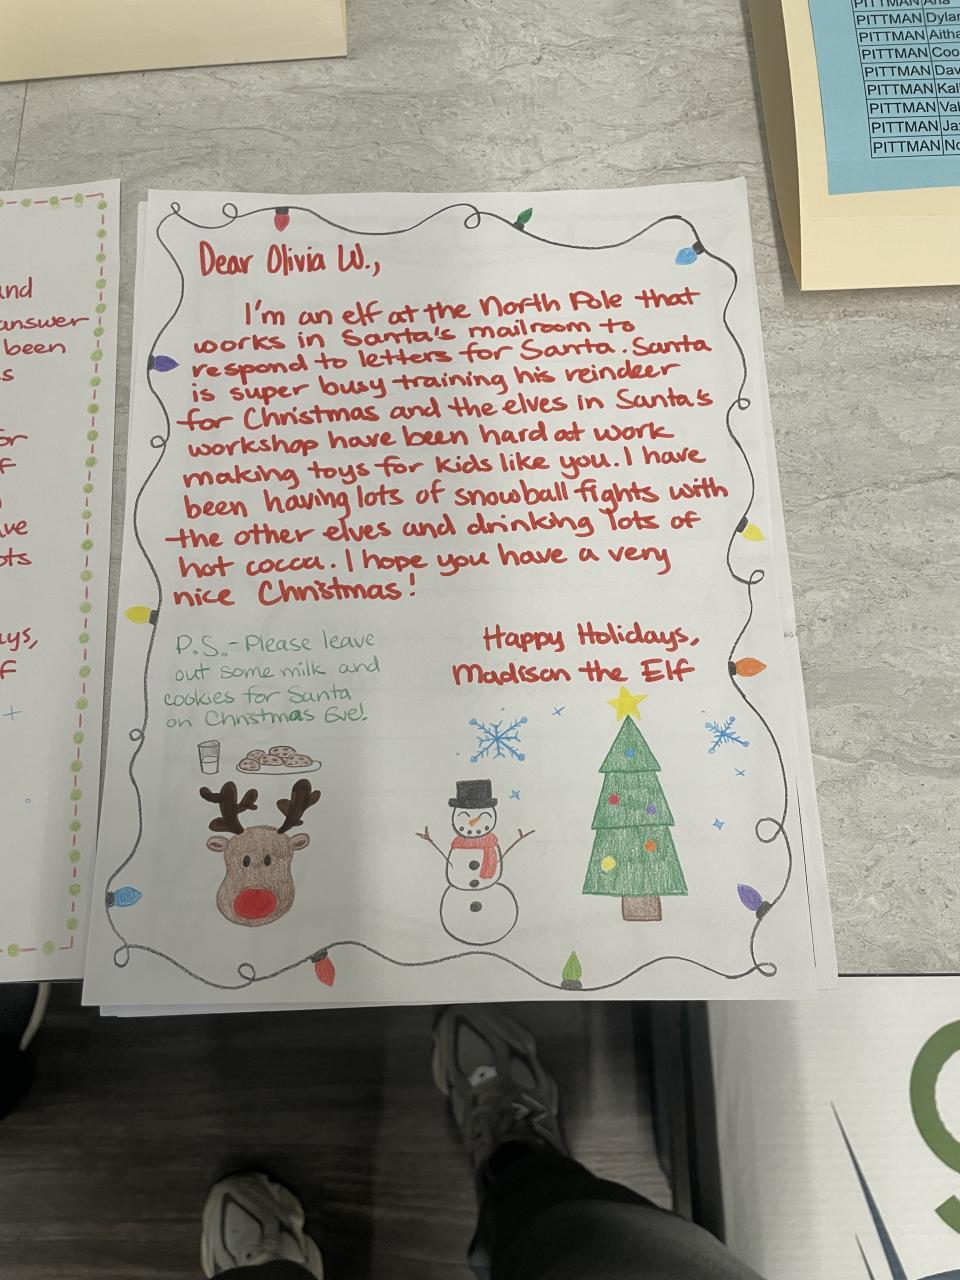 PITTMAN
PITTMAN Dylan
PITTMAN Aitha
PITTMAN Coo
PITTMAN Dav
PITTMAN Kal
PITTMAN Val
PITTMAN Ja
PITTMAN No
and
answer
been
s
or
f
ve
ots
ays,
f
Dear Olivia W.,
I'm an elf at the North Pole that
works in Santa's mailroom to
respond to letters for Santa. Santa
is super busy training his reindeer
for Christmas and the elves in Santa's
workshop have been hard at work
making toys for kids like you. I have
been having lots of snowball fights with
the other elves and drinking lots of
hot cocca. I hope you have a very
nice Christmas!
Happy Holidays,
Madison the Elf
P.S.-Please leave
out some milk and
cookies for Santa
on Christmas Eve!